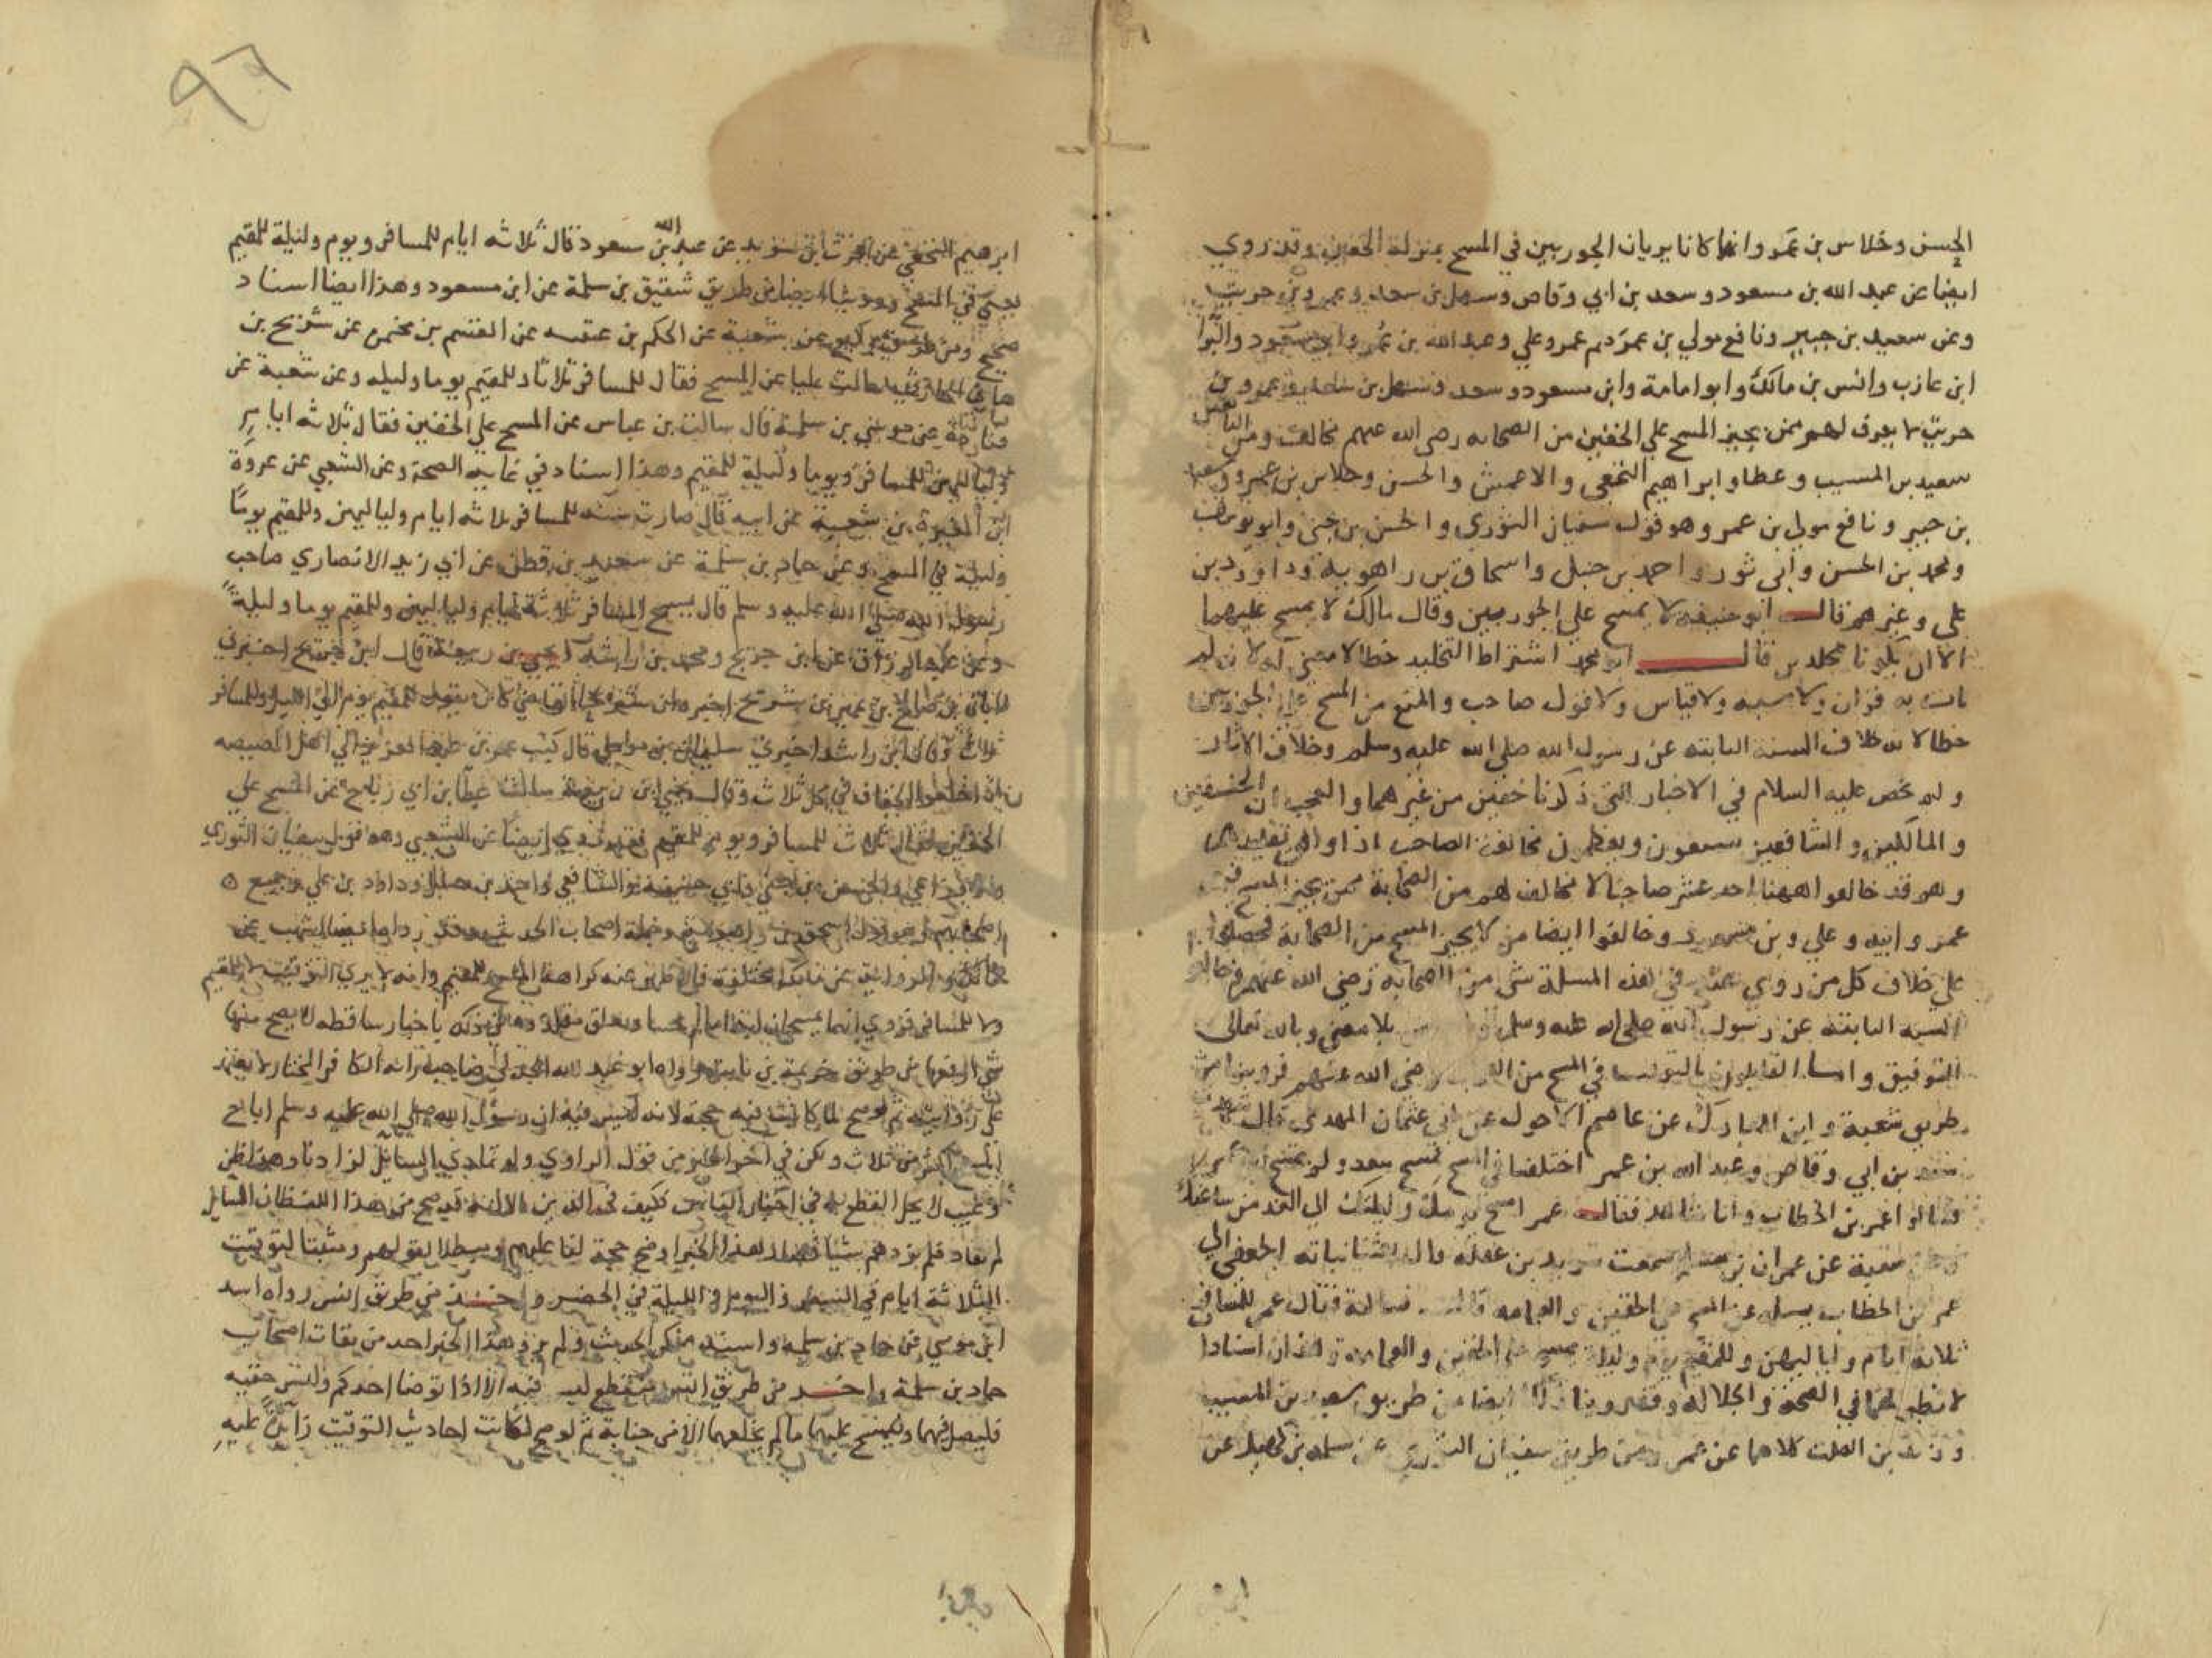 الحسن وخلاس بن عمرو انهما كانا يريان الجوربين في المسح بمنزلة الخفين وقد روي
ايضا عن عبد الله بن مسعود وسعد بن ابي وقاص وسهل بن سعد وعمرو بن حريث
وعن سعيد بن جبير ونافع مولي بن عمر دم عمر وعلي وعبد الله بن عمرو وابو مسعود والبرا
ابن عازب وانس بن مالك وابو امامة وابن مسعود وسعد وسهل بن سعد وعمرو بن
حريث لا يعرف لهم ممن يجيز المسح علي الخفين من الصحابه رضي الله عنهم مخالف ومن التابعين
سعيد بن المسيب وعطا وابراهيم النخعي والاعمش والحسن وخلاس بن عمرو وسعيد
بن جبير ونافع مولي بن عمر وهو قول سفيان الثوري والحسن بن حي وابو يوسف
ومحمد بن الحسن وابي ثور واحمد بن حنبل واسحاق بن راهويه وداود بن
علي وغيرهم قال ابو حنيفه لا يمسح علي الجوربين وقال مالك لا يمسح عليهما
الا ان يكونا مجلدين قال ابو محمد اشتراط التجليد خطا لا معني له لانه لم
يات به قران ولا سنه ولا قياس ولا قول صاحب والمنع من المسح علي الجوربين
خطا لانه خلاف السنه الثابته عن رسول الله صلي الله عليه وسلم وخلاف الاثار
ولم يخص عليه السلام في الاخبار التي ذكرنا خفين من غيرهما والعجب ان الحنيفين
والمالكين والشافعين يشنعون ويعظمون مخالفة الصاحب اذا وافق تقليدهم
وهم قد خالفوا ههنا احد عشر صاحبا لا مخالف لهم من الصحابة ممن يجيز المسح فيهم
عمر وابنه وعلي وبن مسعود وخالفوا ايضا من لا يجيز المسح من الصحابة فحصلوا
علي خلاف كل من روي عنه في هذه المسلة شي من الصحابه رضي الله عنهم وخالفوا
السنه الثابته عن رسول الله صلي الله عليه وسلم بلا معني وبالله تعالى
التوفيق واما القايلون بالتوقيت في المسح من الصحابه رضي الله عنهم فروينا من
طريق شعبة وابن المبارك عن عاصم الاحول عن ابي عثمان النهدي قال شهدت
سعد بن ابي وقاص وعبد الله بن عمر اختلفا في المسح فمسح سعد ولم يمسح ابن عمر
فسالوا عمر بن الخطاب وانا شاهد فقال عمر امسح يومك وليلتك الي الغد من ساعتك
شعبة عن عمران بن مسلم سمعت سويد بن غفله قال بعثنا نباته الجعفي الي
عمر بن الخطاب يساله عن المسح علي الخفين والعمامه قال فساله فقال عمر للمسافر
ثلاثه ايام ولياليهن وللمقيم يوم وليلة يمسح علي الخفين والعمامه وهذان اسنادا
لا نظير لهما في الصحة والجلاله وقد روينا ذلك ايضا من طريق سعيد بن المسيب
وزيد بن الصلت كلاهما عن عمر ومن طريق سفيان الثوري عن سلمه بن كهيل عن
ابرهيم
٩٦
ابرهيم النخعي عن الحرث بن سويد عن عبد الله بن مسعود قال ثلاثه ايام للمسافر ويوم وليلة للمقيم
يعني في المسح وروينا ايضا من طريق شقيق بن سلمة عن ابن مسعود وهذا ايضا اسناد
صحيح ومن طريق وكيع عن شعبة عن الحكم بن عتيبه عن القسم بن مخيمره عن شريح بن
هاني الحارثي سالت عليا عن المسح فقال للمسافر ثلاثا وللمقيم يوما وليله وعن شعبة عن
قتادة عن موسي بن سلمة قال سالت بن عباس عن المسح علي الخفين فقال ثلاثه ايام
ولياليهن للمسافر ويوما وليلة للمقيم وهذا اسناد في غايه الصحة وعن الشعبي عن عروة
ابن المغيرة بن شعبة عن ابيه قال صارت سنه للمسافر ثلاثه ايام ولياليهن وللمقيم يوما
وليلة في المسح وعن حماد بن سلمة عن سعيد بن قطن عن ابي زيد الانصاري صاحب
رسول الله صلي الله عليه وسلم قال يمسح المسافر ثلاثة ايام ولياليهن وللمقيم يوما وليلة
وعن عبد الرزاق عن ابن جريج ومحمد بن راشد بن ربيعة قال ابن جريج اخبرني
ابان بن صالح بن عمير ان شريح اخبره ان شريحا القاضي كان يقول للمقيم يوم الي الليل وللمسافر
ثلاث وقال ابن راشد اخبرني سليمان بن موسي قال كتب عمر بن عبد العزيز الي اهل المصيصه
ان اخلعوا الخفاف في كل ثلاث وقال يحيي بن ربيعه سالت عطا بن ابي رباح عن المسح علي
الخفين فقال ثلاث للمسافر ويوم للمقيم وروي ايضا عن الشعبي وهو قول سفيان الثوري
والاوزاعي والحسن بن حي وابي حنيفه والشافعي واحمد بن حنبل وداود بن علي وجميع
اصحابهم وهو قول اسحق بن راهويه وجملة اصحاب الحديث وقد رواه ايضا اشهب عن
مالك والرواية عن مالك مختلفة فالاظهر عنه كراهة المسح للمقيم وانه لا يري التوقيت لا للمقيم
ولا للمسافر وروي انهما يمسحان ابدا ما لم يجنبا وتعلق مقلدوه في ذلك باخبار ساقطه لا يصح منها
شي ارفعها من طريق خزيمة بن ثابت رواه ابو عبد الله الجدلي صاحب راية الكافر المختار لا يعتمد
علي روايته ثم لو صح لما كانت فيه حجة لانه ليس فيه ان رسول الله صلي الله عليه وسلم اباح
المسح اكثر من ثلاث ولكن في اخر الخبر من قول الراوي ولو تمادي السائل لزادنا وهذا ظن
وغيب لا يحل القطع به في اخبار الناس فكيف في الدين الا انه قد صح من هذا اللفظ ان السايل
لم يتماد فلم يزدهم شيا فصار هذا الخبر لو صح حجة لنا عليهم ومبطلا لقولهم ومثبتا لتوقيت
الثلاثة ايام في السفر واليوم والليلة في الحضر واخر من طريق انس رواه اسد
ابن موسي عن حماد بن سلمه واسد منكر الحديث ولم يرو هذا الخبر احد من ثقات اصحاب
حماد بن سلمة واخر من طريق انس منقطع ليس فيه الا اذا توضا احدكم ولبس خفيه
فليصل فيهما وليمسح عليهما ما لم يخلعهما الا من جنابة ثم لو صح لكانت احاديث التوقيت زايدة عليه